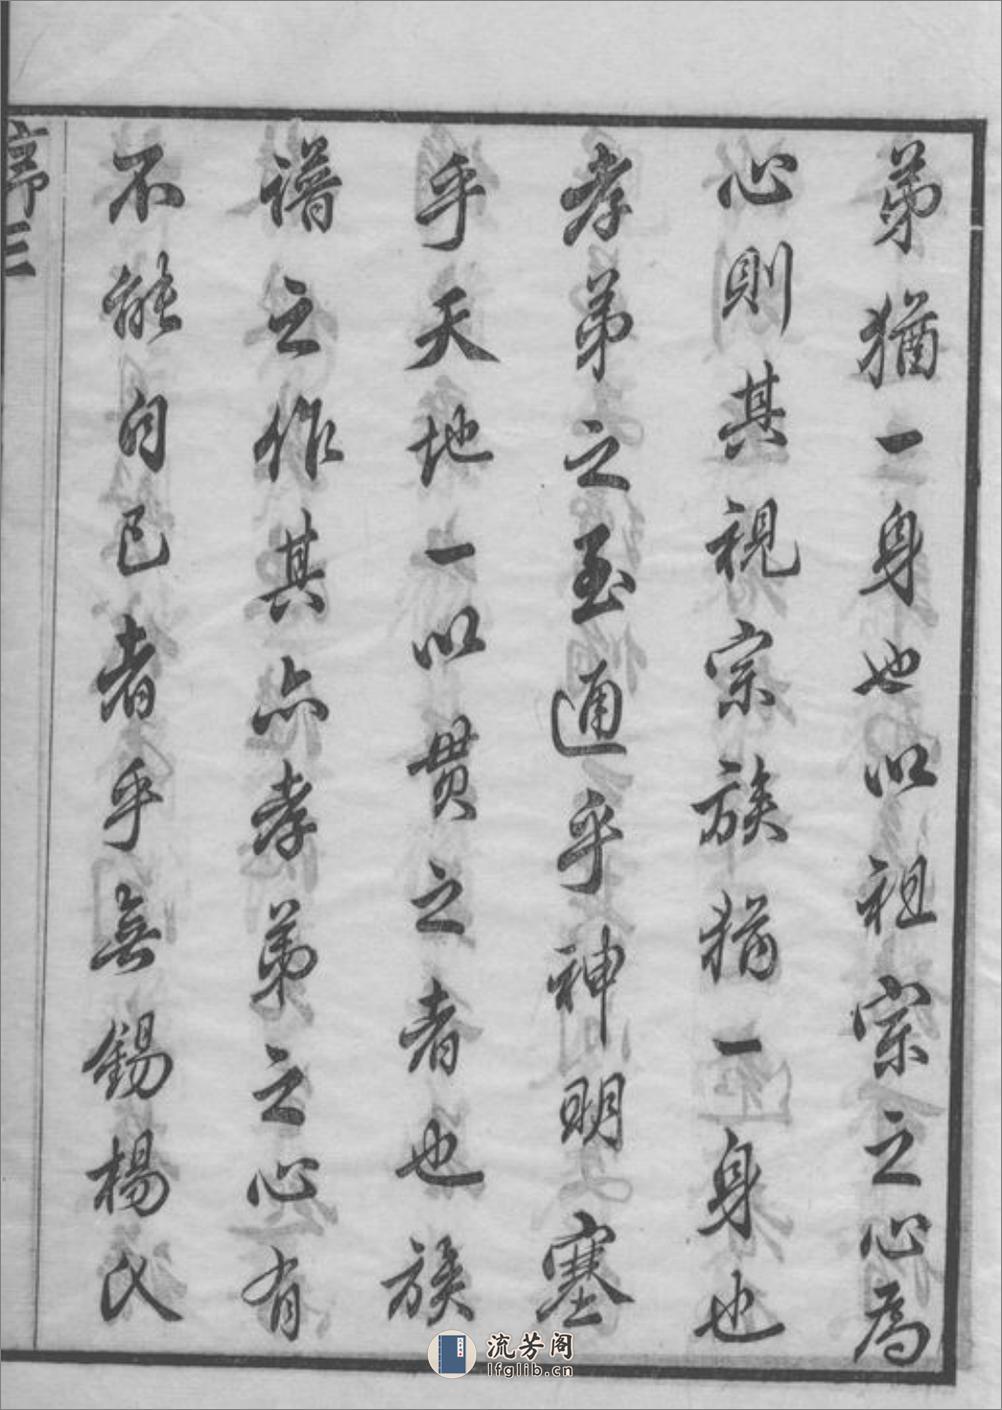 弟猶一身也以祖宗之心為
心則其視宗族猶一身也
孝弟之至通乎神明塞
乎天地一以貫之者也族
譜之作其亦孝弟之心有
不能自已者乎無錫楊氏
序三
流芳阁
lfglib.cn